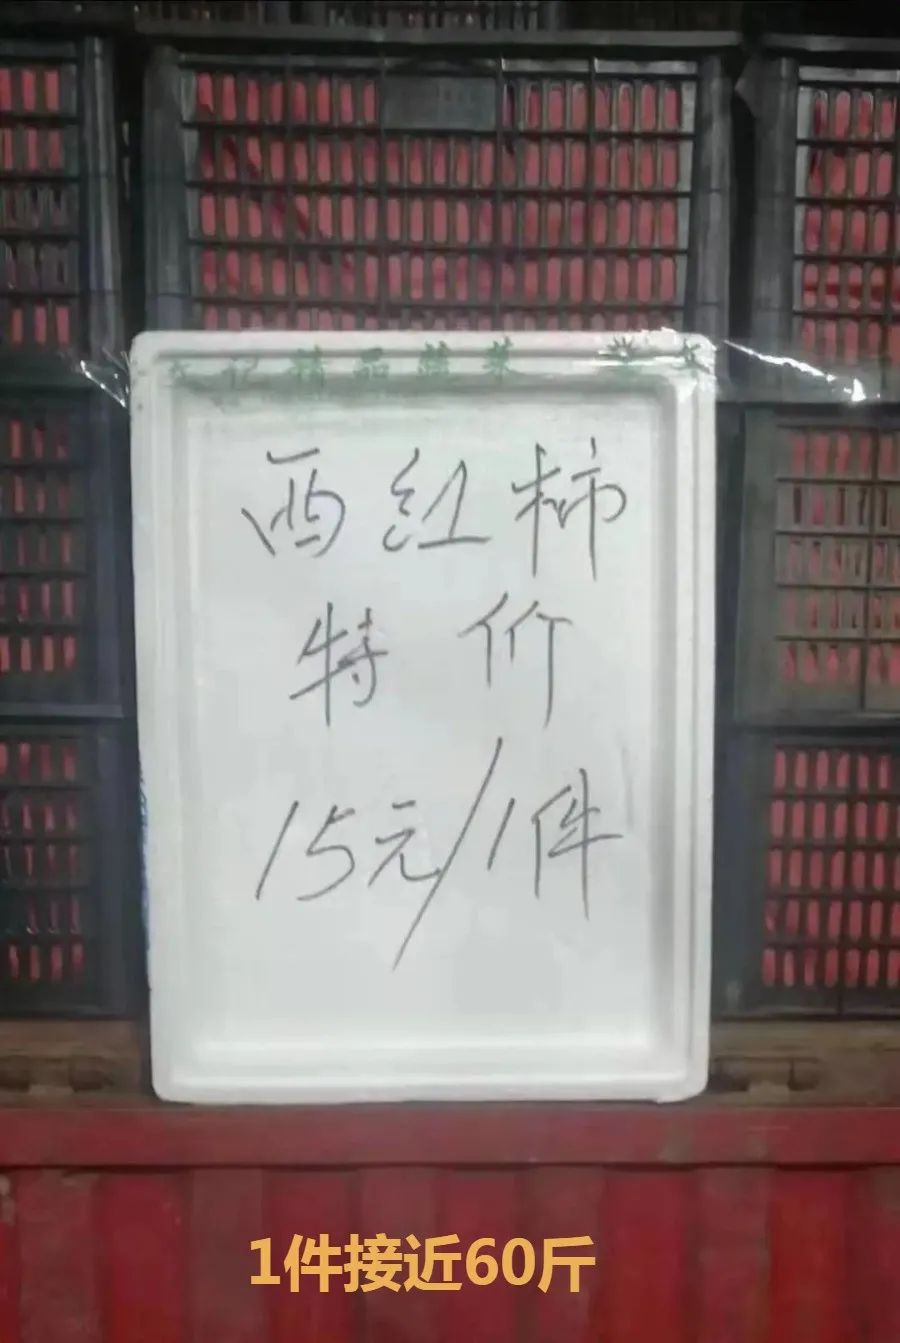 精品蔬菜
西红柿
特价
15元/1件
1件接近60斤